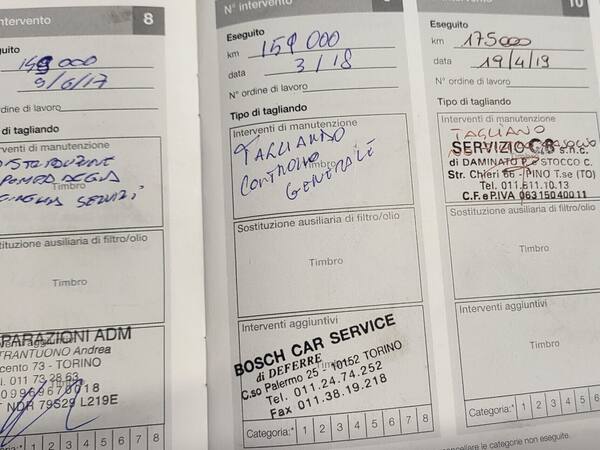 8
guito
149000
9/6/17
dine di lavoro
di tagliando
venti di manutenzione
DISTRIBUZIONE
POMPA ACQUA
Timbro
CINGHIA SERVIZI
tuzione ausiliaria di filtro/olio
Timbro
PARAZIONI ADM
TRANTUONO Andrea
cento 73 - TORINO
l. 011 73 28 63
09969670018
NDR 79S29 L219E
1 2 3 4 5 6 7 8
N° intervento
Eseguito
km 159 000
data 3/18
N° ordine di lavoro
Tipo di tagliando
Interventi di manutenzione
TAGLIANDO
CONTROLLO
GENERALE
Timbro
Sostituzione ausiliaria di filtro/olio
Timbro
Interventi aggiuntivi
BOSCH CAR SERVICE
di DEFERRE
C.so Palermo 25 - 10152 TORINO
Tel. 011.24.74.252
Fax 011.38.19.218
Categoria:* 1 2 3 4 5 6 7 8
intervento 10
Eseguito
km 175000
data 19/4/19
N° ordine di lavoro
Tipo di tagliando
Interventi di manutenzione
TAGLIANO
SERVIZIO s.n.c.
di DAMINATO P. STOCCO C.
Str. Chieri 66 - PINO T.se (TO)
Tel. 011.611.10.13
C.F. e P.IVA 06315040011
Sostituzione ausiliaria di filtro/olio
Timbro
Interventi aggiuntivi
Timbro
Categoria:* 1 2 3 4 5 6 7 8
ncellare le categorie non eseguite.